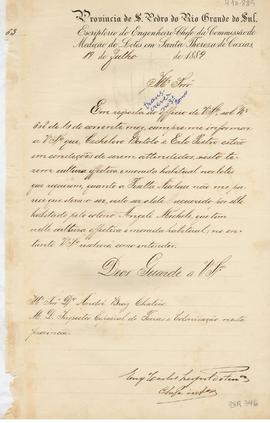 Provincia de S. Pedro do Rio Grande do Sul.
Escriptorio do Engenheiro Chefe da Commissão de
Medição de Lotes em Santa Thereza de Caxias,
19 de Julho de 1889
63
Illmo Snr
Em resposta do officio de VSª sob Nº
de 10 do corrente mez, cumpre-me informar
a VSª que, Bortolo e
em condições de serem attendidos, visto te-
rem cultura effectiva e morada habitual nos lotes
que requerem, quanto a Fratta não me pa-
rece que deva o ser, visto ser o lote requerido
habitado pelo colono Angelo Micheli, que tem
nelle cultura effectiva e morada habitual, no en-
tanto VSª resolverá como entender.
Deus Guarde a VSª
Illmo Snr Dr
M. D. Inspector Especial de Terras e Colonisação nesta
provincia.
Engº
Chefe
346